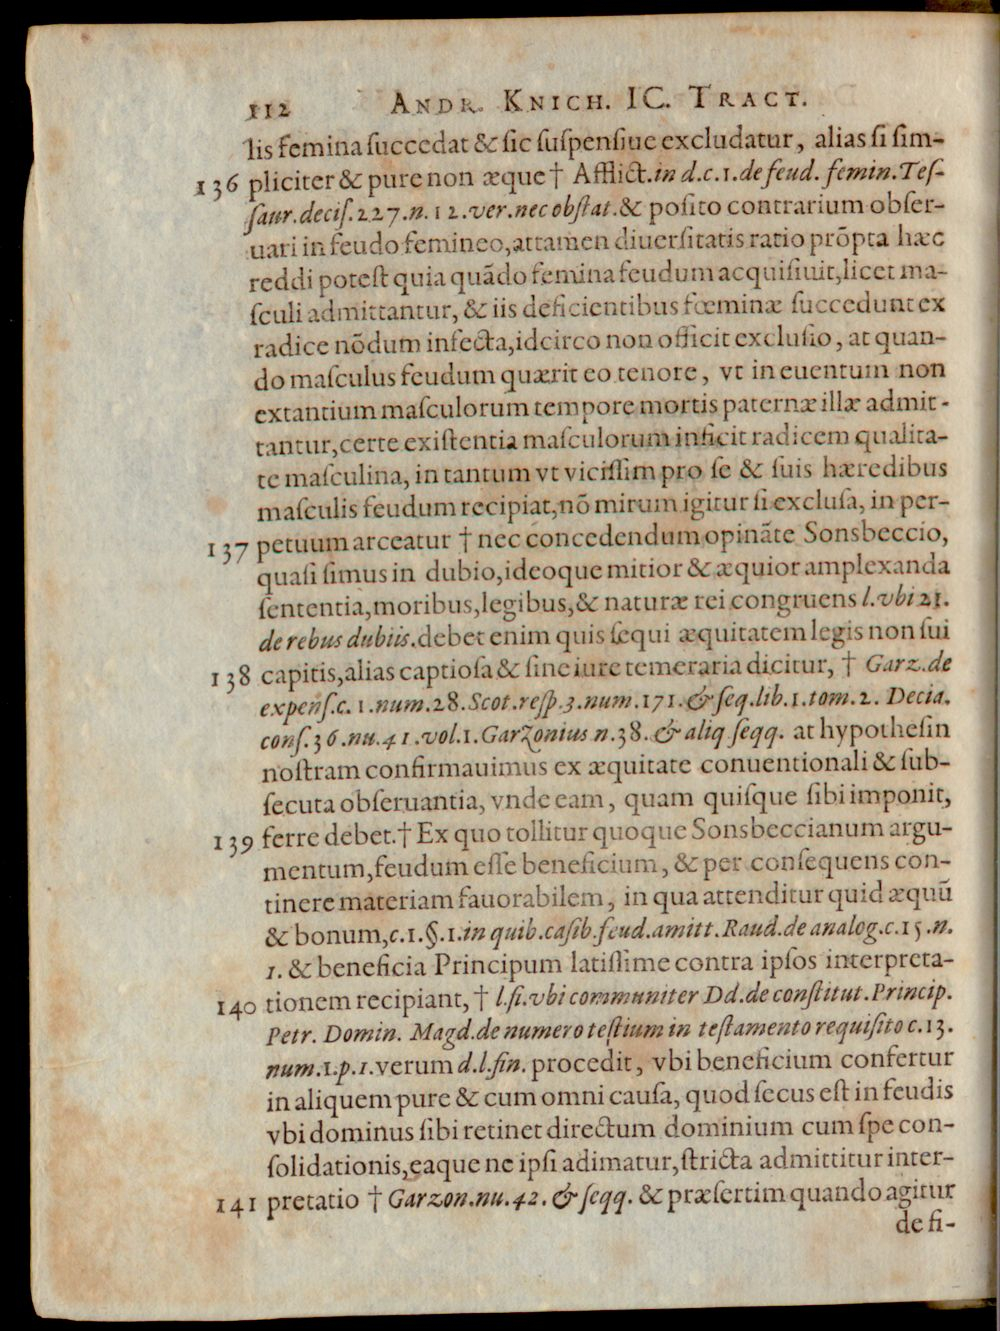 112 ANDR. KNICH. IC. TRACT.
lis femina ſuccedat & ſic ſuſpenſiue excludatur, alias ſi ſim-
136 pliciter & pure non æque † Afflict. in d.c.1. de feud. femin. Teſ-
ſaur. deciſ. 227. n. 12. ver. nec obſtat. & poſito contrarium obſer-
uari in feudo femineo, attamen diuerſitatis ratio prõpta hæc
reddi poteſt quia quãdo femina feudum acquiſiuit, licet ma-
ſculi admittantur, & iis deficientibus fœminæ ſuccedunt ex
radice nõdum infecta, idcirco non officit excluſio, at quan-
do maſculus feudum quærit eo tenore, vt in euentum non
extantium maſculorum tempore mortis paternæ illæ admit-
tantur, certe exiſtentia maſculorum inficit radicem qualita-
te maſculina, in tantum vt viciſſim pro ſe & ſuis hæredibus
maſculis feudum recipiat, nõ mirum igitur ſi excluſa, in per-
137 petuum arceatur † nec concedendum opinãte Sonsbeccio,
quaſi ſimus in dubio, ideoque mitior & æquior amplexanda
ſententia, moribus, legibus, & naturæ rei congruens l. vbi 21.
de rebus dubiis. debet enim quis ſequi æquitatem legis non ſui
138 capitis, alias captioſa & ſine iure temeraria dicitur, † Garz. de
expenſ. c. 1. num. 28. Scot. reſp. 3. num. 171. & ſeq. lib. 1. tom. 2. Decia.
conſ. 36. nu. 41. vol. 1. Garzonius n. 38. & aliq ſeqq. at hypotheſin
noſtram confirmauimus ex æquitate conuentionali & ſub-
ſecuta obſeruantia, vnde eam, quam quiſque ſibi imponit,
139 ferre debet. † Ex quo tollitur quoque Sonsbeccianum argu-
mentum, feudum eſſe beneficium, & per conſequens con-
tinere materiam fauorabilem, in qua attenditur quid æquũ
& bonum, c. 1. §. 1. in quib. caſib. feud. amitt. Raud. de analog. c. 15. n.
1. & beneficia Principum latiſſime contra ipſos interpreta-
140 tionem recipiant, † l. fi. vbi communiter Dd. de conſtitut. Princip.
Petr. Domin. Magd. de numero teſtium in teſtamento requiſito c. 13.
num. 1. p. 1. verum d. l. fin. procedit, vbi beneficium confertur
in aliquem pure & cum omni cauſa, quod ſecus eſt in feudis
vbi dominus ſibi retinet directum dominium cum ſpe con-
ſolidationis, eaque ne ipſi adimatur, ſtricta admittitur inter-
141 pretatio † Garzon. nu. 42. & ſeqq. & præſertim quando agitur
de fi-